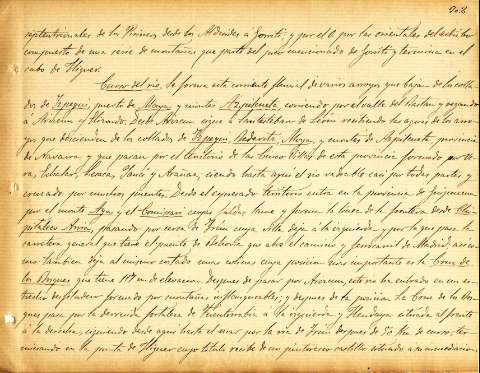 902
septentrionales de los Pirineos desde los Alduides a Gorriti; y por el O por las orientales del
compuesto de una serie de montañas que parte del pico mencionado de Gorriti y termina en el
cabo de Higuer.
Curso del rio, Se forma esta corriente fluvial de varios arroyos que bajan de los colla-
dos de Izpegui, puerto de Maya y montes, corriendo por el valle del Baztan y regando
a Arizcun y Elizondo. Desde sigue a Santesteban de recibiendo las aguas de los arro-
yos que descienden de los collados de Izpegui, Maya, y montes de provincia
de Navarra y que pasan por el territorio de las Cinco Villas de esta provincia formado por Ve-
ra, Echalar, Lesaca, Yanci y Aranaz, siendo hasta aqui el rio vadeable casi por todas partes y
cruzado por muchos puentes. Desde el expresado territorio entra en la provincia de Guipuzcoa
por el monte Aya y el cuyas faldas lame y forma la linea de la frontera desde
pasando por cerca de Irun cuya villa deja a la izquierda y por la que pasa la
carretera general que tiene el puente de Behobia que abre el camino y ferrocarril de Madrid; asi co-
mo tambien deja al mismo costado unas colinas cuya posicion mas importante es la Cruz de
los Bosques que tiene de elevacion. Despues de pasar por este rio ha entrado en un es-
trecho desfiladero formado por montañas inexpugnables; y despues de la posicion la Cruz de los Bos-
ques pasa por la derruida fortaleza de Fuenterrabia a la izquierda y Hendaya estacion del frente
a la derecha, siguiendo desde aqui hasta el mar por la ria de Irun despues de 70 km de curso, ter-
minando en la punta de Higuer cuyo titulo recibe de un pintoresco castillo situado a su inmediacion